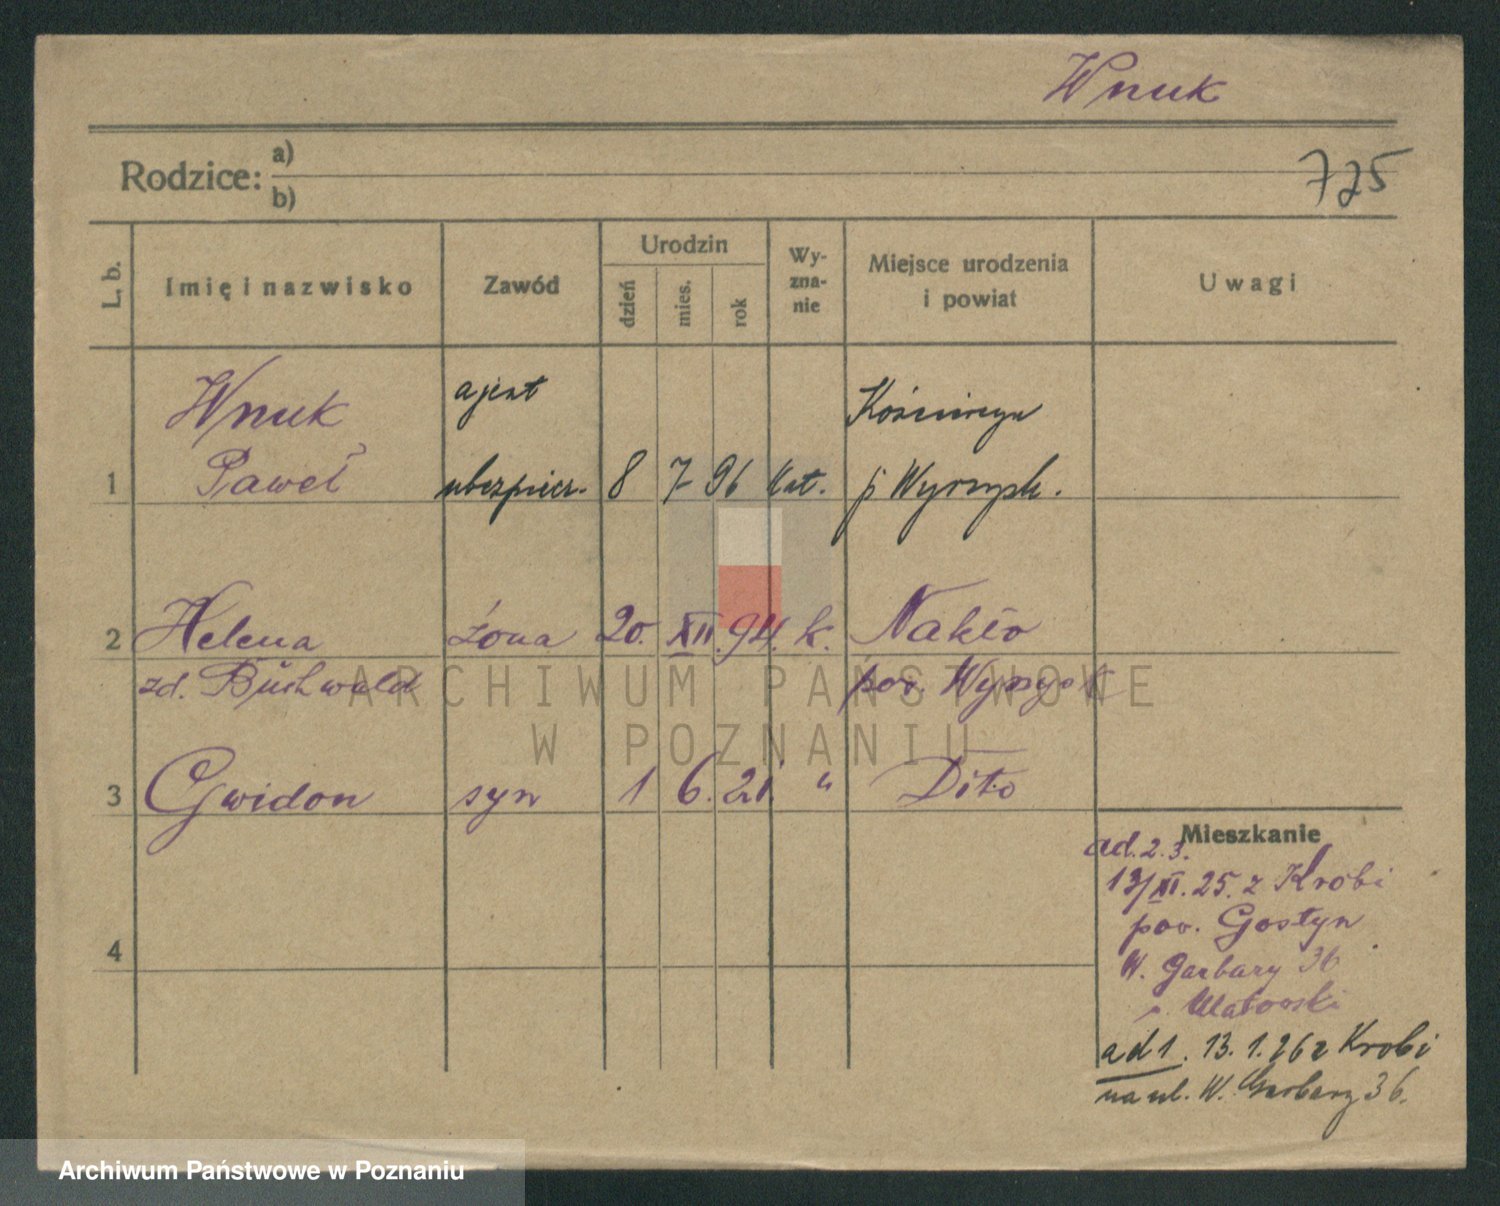 Wnuk
725
Rodzice: a)
b)
L. b. Imię i nazwisko Zawód Urodzin dzień mies. rok Wy-zna-nie Miejsce urodzenia i powiat Uwagi
Wnuk ajent
1 Paweł ubezpiecz. 8 7 96 kat. p. Wyrzysk.
2 Helena żona 20. XII. 94. k. Nakło
zd. Buchwald pow. Wyrzysk
3 Gwidon syn 1 6. 21. " Dito
Mieszkanie
ad. 2. 3.
13/XI. 25. z Krobi
pow. Gostyn
4
W. Garbary 36
ad 1. 13. 1. 26 z Krobi
na ul. W. Garbary 36.
ARCHIWUM PAŃSTWOWE
W POZNANIU
Archiwum Państwowe w Poznaniu